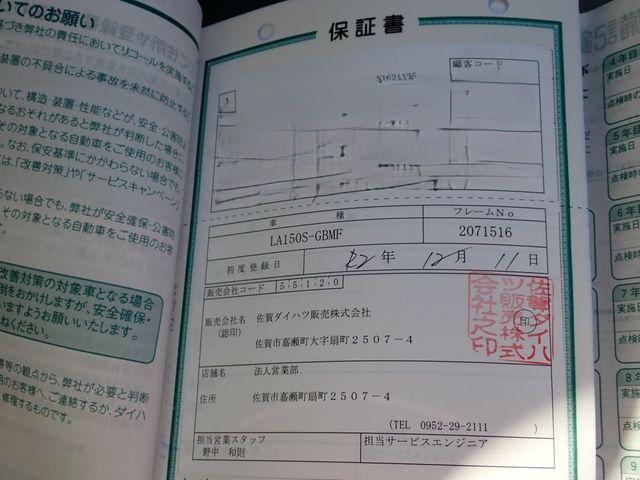 いてのお願い
基づき弊社の責任においてリコールを実施する
装置の不具合による事故を未然に防止する
ついて、構造・装置・性能などが、安全・公害防止
なるおそれがあると弊社が判断した場合に
その対象となる自動車をご使用のお客様に
なお、保安基準にかかわらない場合でも、
は、「改善対策」や「サービスキャンペーン」
らない場合でも、弊社が安全確保・公害防
その対象となる自動車をご使用のお客
改善対策の対象車となる場合
倒をおかけしますが、安全確保・
いますようお願いいたします。
ねください。
等の観点から、弊社が必要と判断
用のお客様へ、ご連絡するか、ダイハ
修理するものです。
保証書
顧客コード
N1621135
車種
フレームNo
LA150S-GBMF
2071516
初度登録日
R2年 12月 11日
販売会社コード 55120
販売会社名 佐賀ダイハツ販売株式会社
(認印)
佐賀市嘉瀬町大字扇町2507-4
印
佐賀ダイハ
ツ販売株式
会社之印
店舗名 法人営業部
住所 佐賀市嘉瀬町扇町2507-4
(TEL 0952-29-2111 )
担当営業スタッフ
野中 和則
担当サービスエンジニア
4年目
実施日
点検時の
5年目
実施日
点検時の
6年
実施
点検
7年
実施
点検時
8年
実施
点検
9